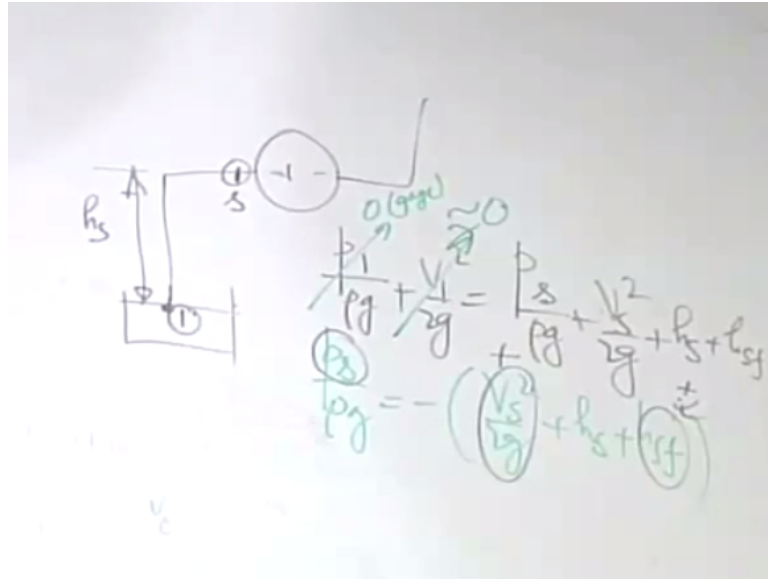 h_s
s
1
0 (gage)
≈0
p_1/ρg + V_1^2/2g = p_s/ρg + V_s^2/2g + h_s + h_sf
p_s/ρg = -(V_s^2/2g + h_s + h_sf)